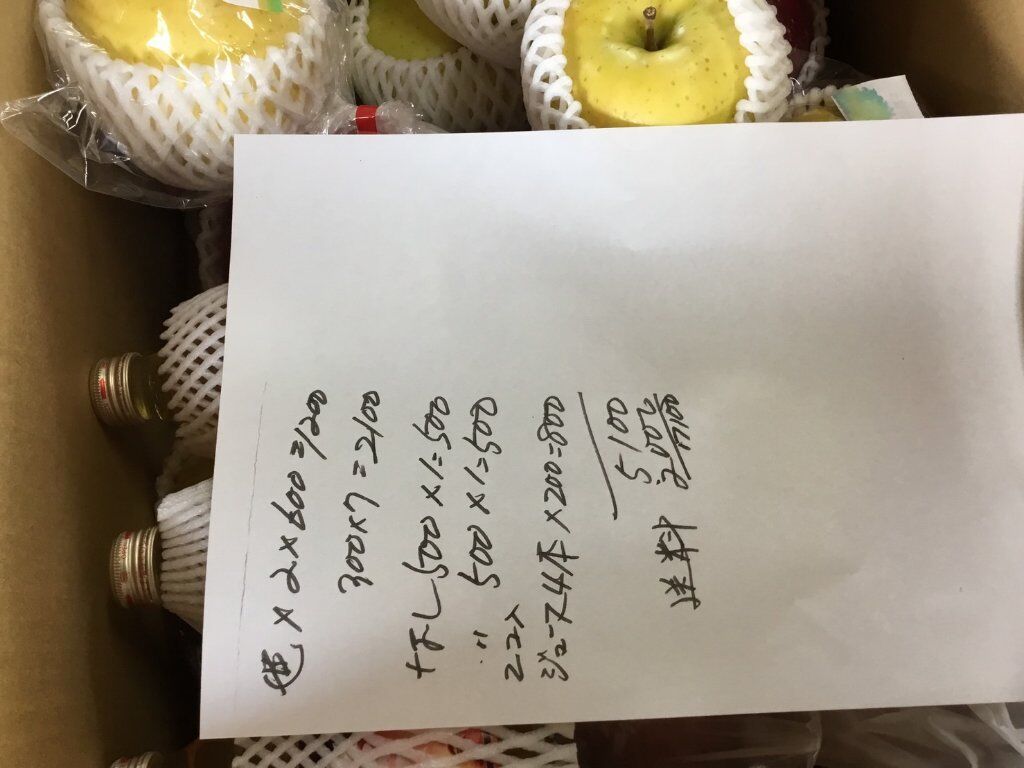 ×2×600=1200
300×7=2100
500×1=500
〃 500×1=500
2コ入
ジュース4本×200=800
5100
送料 2000
7100